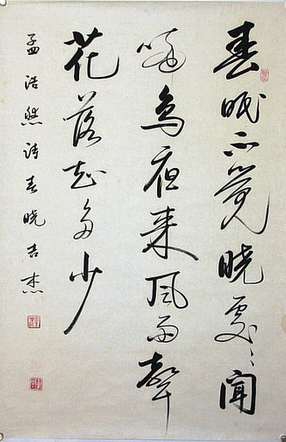 春眠不觉晓处々闻
啼鸟夜来风雨声
花落知多少
孟浩然诗春晓吉杰